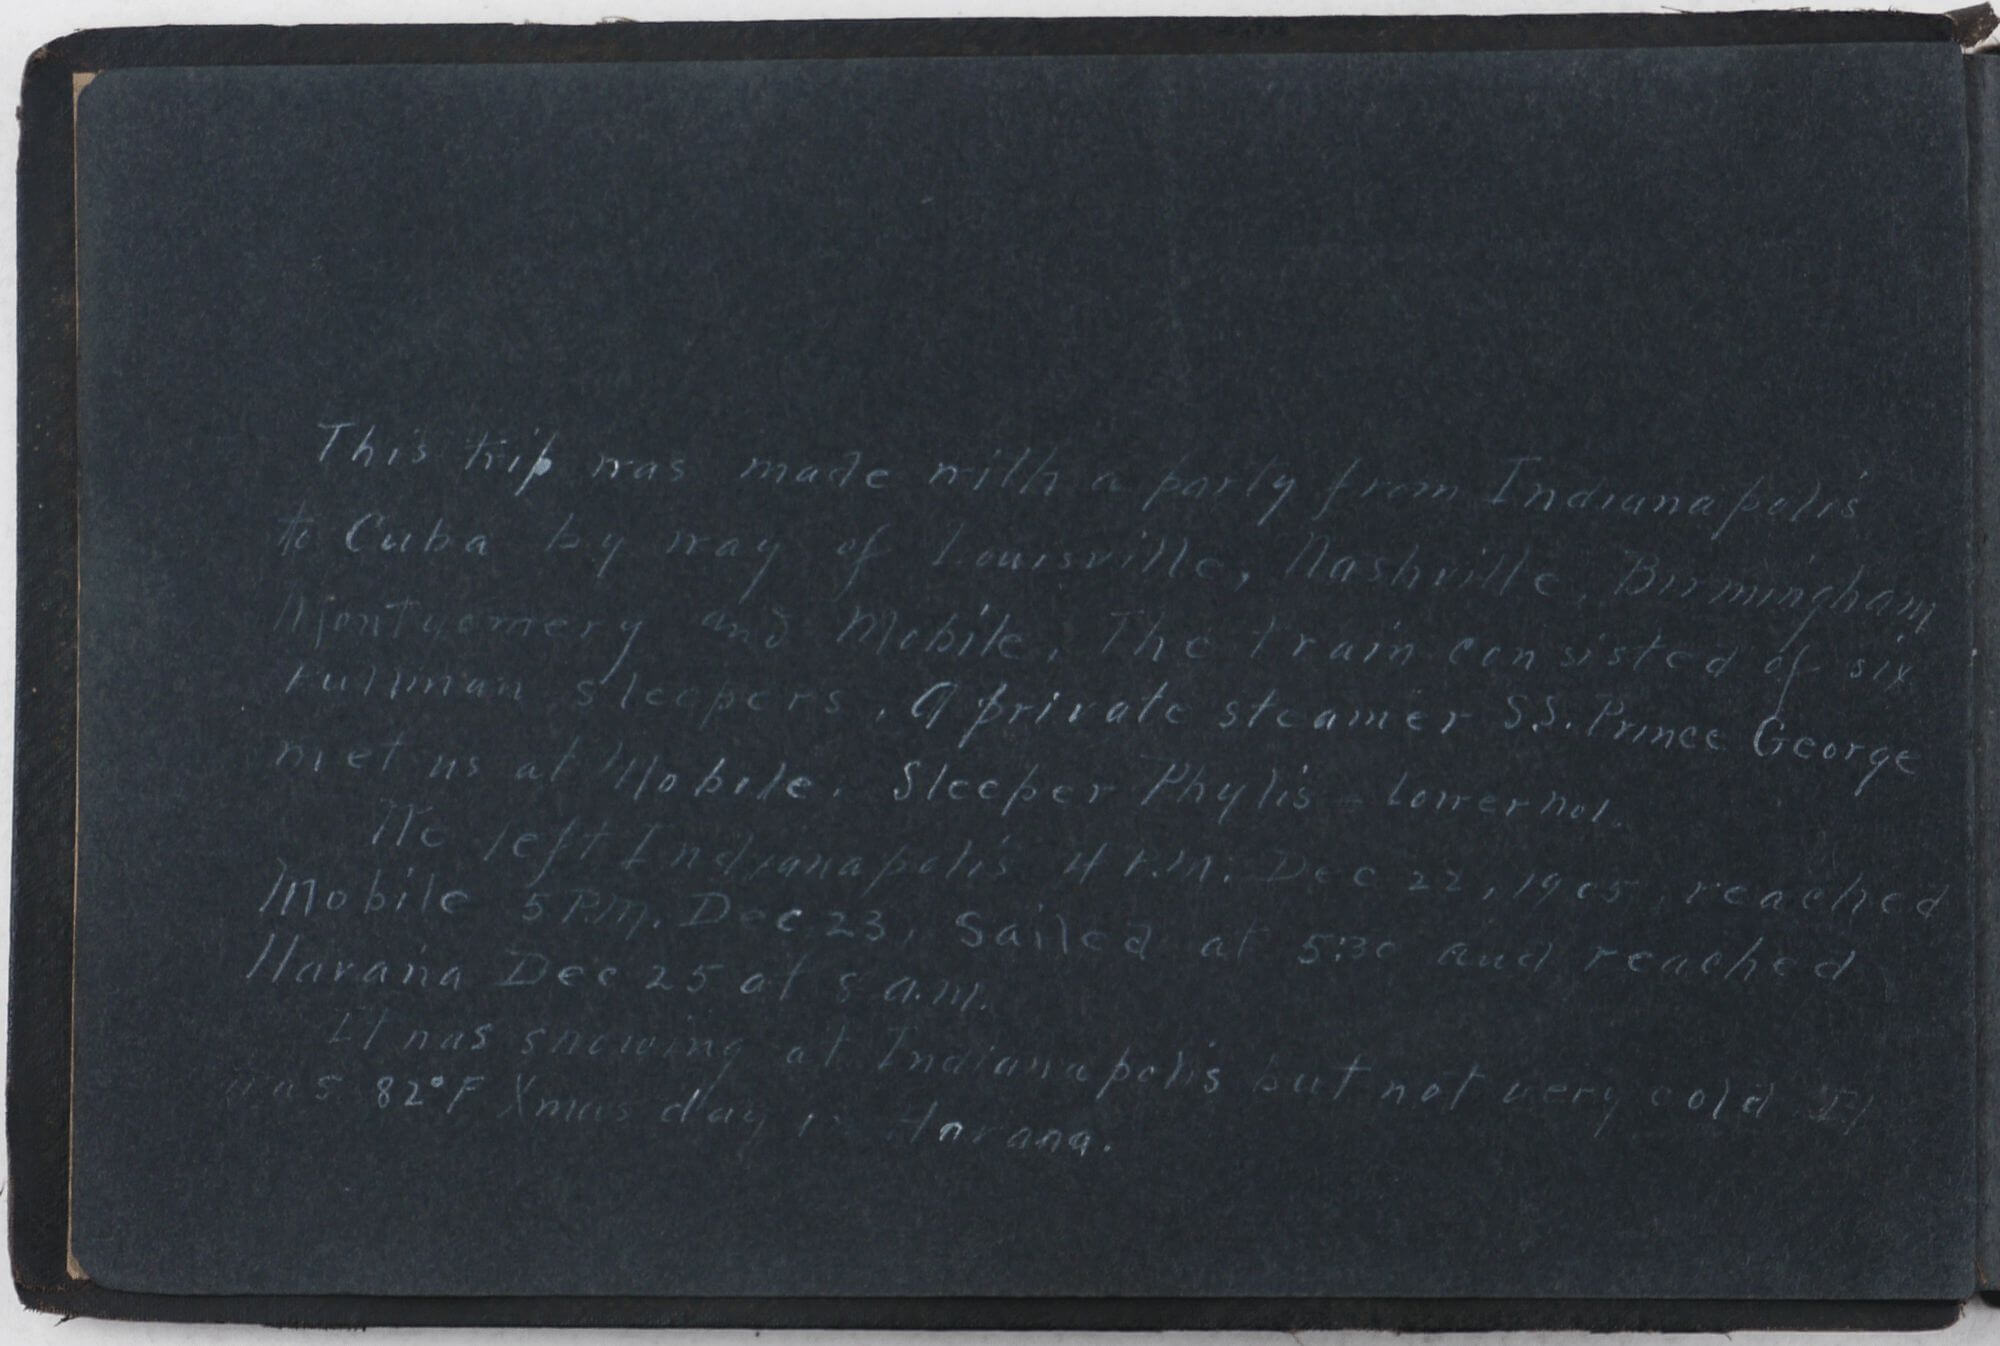 This trip was made with a party from Indianapolis
to Cuba by way of Louisville, Nashville, Birmingham,
Montgomery and Mobile. The train consisted of six
Pullman sleepers. A private steamer SS. Prince George
met us at Mobile. Sleeper Phylis - Lower no 1.
We left Indianapolis 4 P.M. Dec 22, 1905, reached
Mobile 5 P.M. Dec 23, Sailed at 5:30 and reached
Havana Dec 25 at 8 a.m.
It was snowing at Indianapolis but not very cold. It
was 82°F Xmas day in Havana.